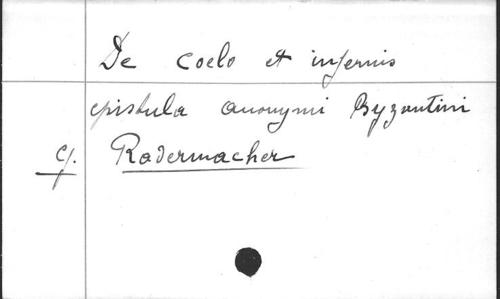 De coelo et infernis
epistula anonymi Byzantini
cf. Radermacher